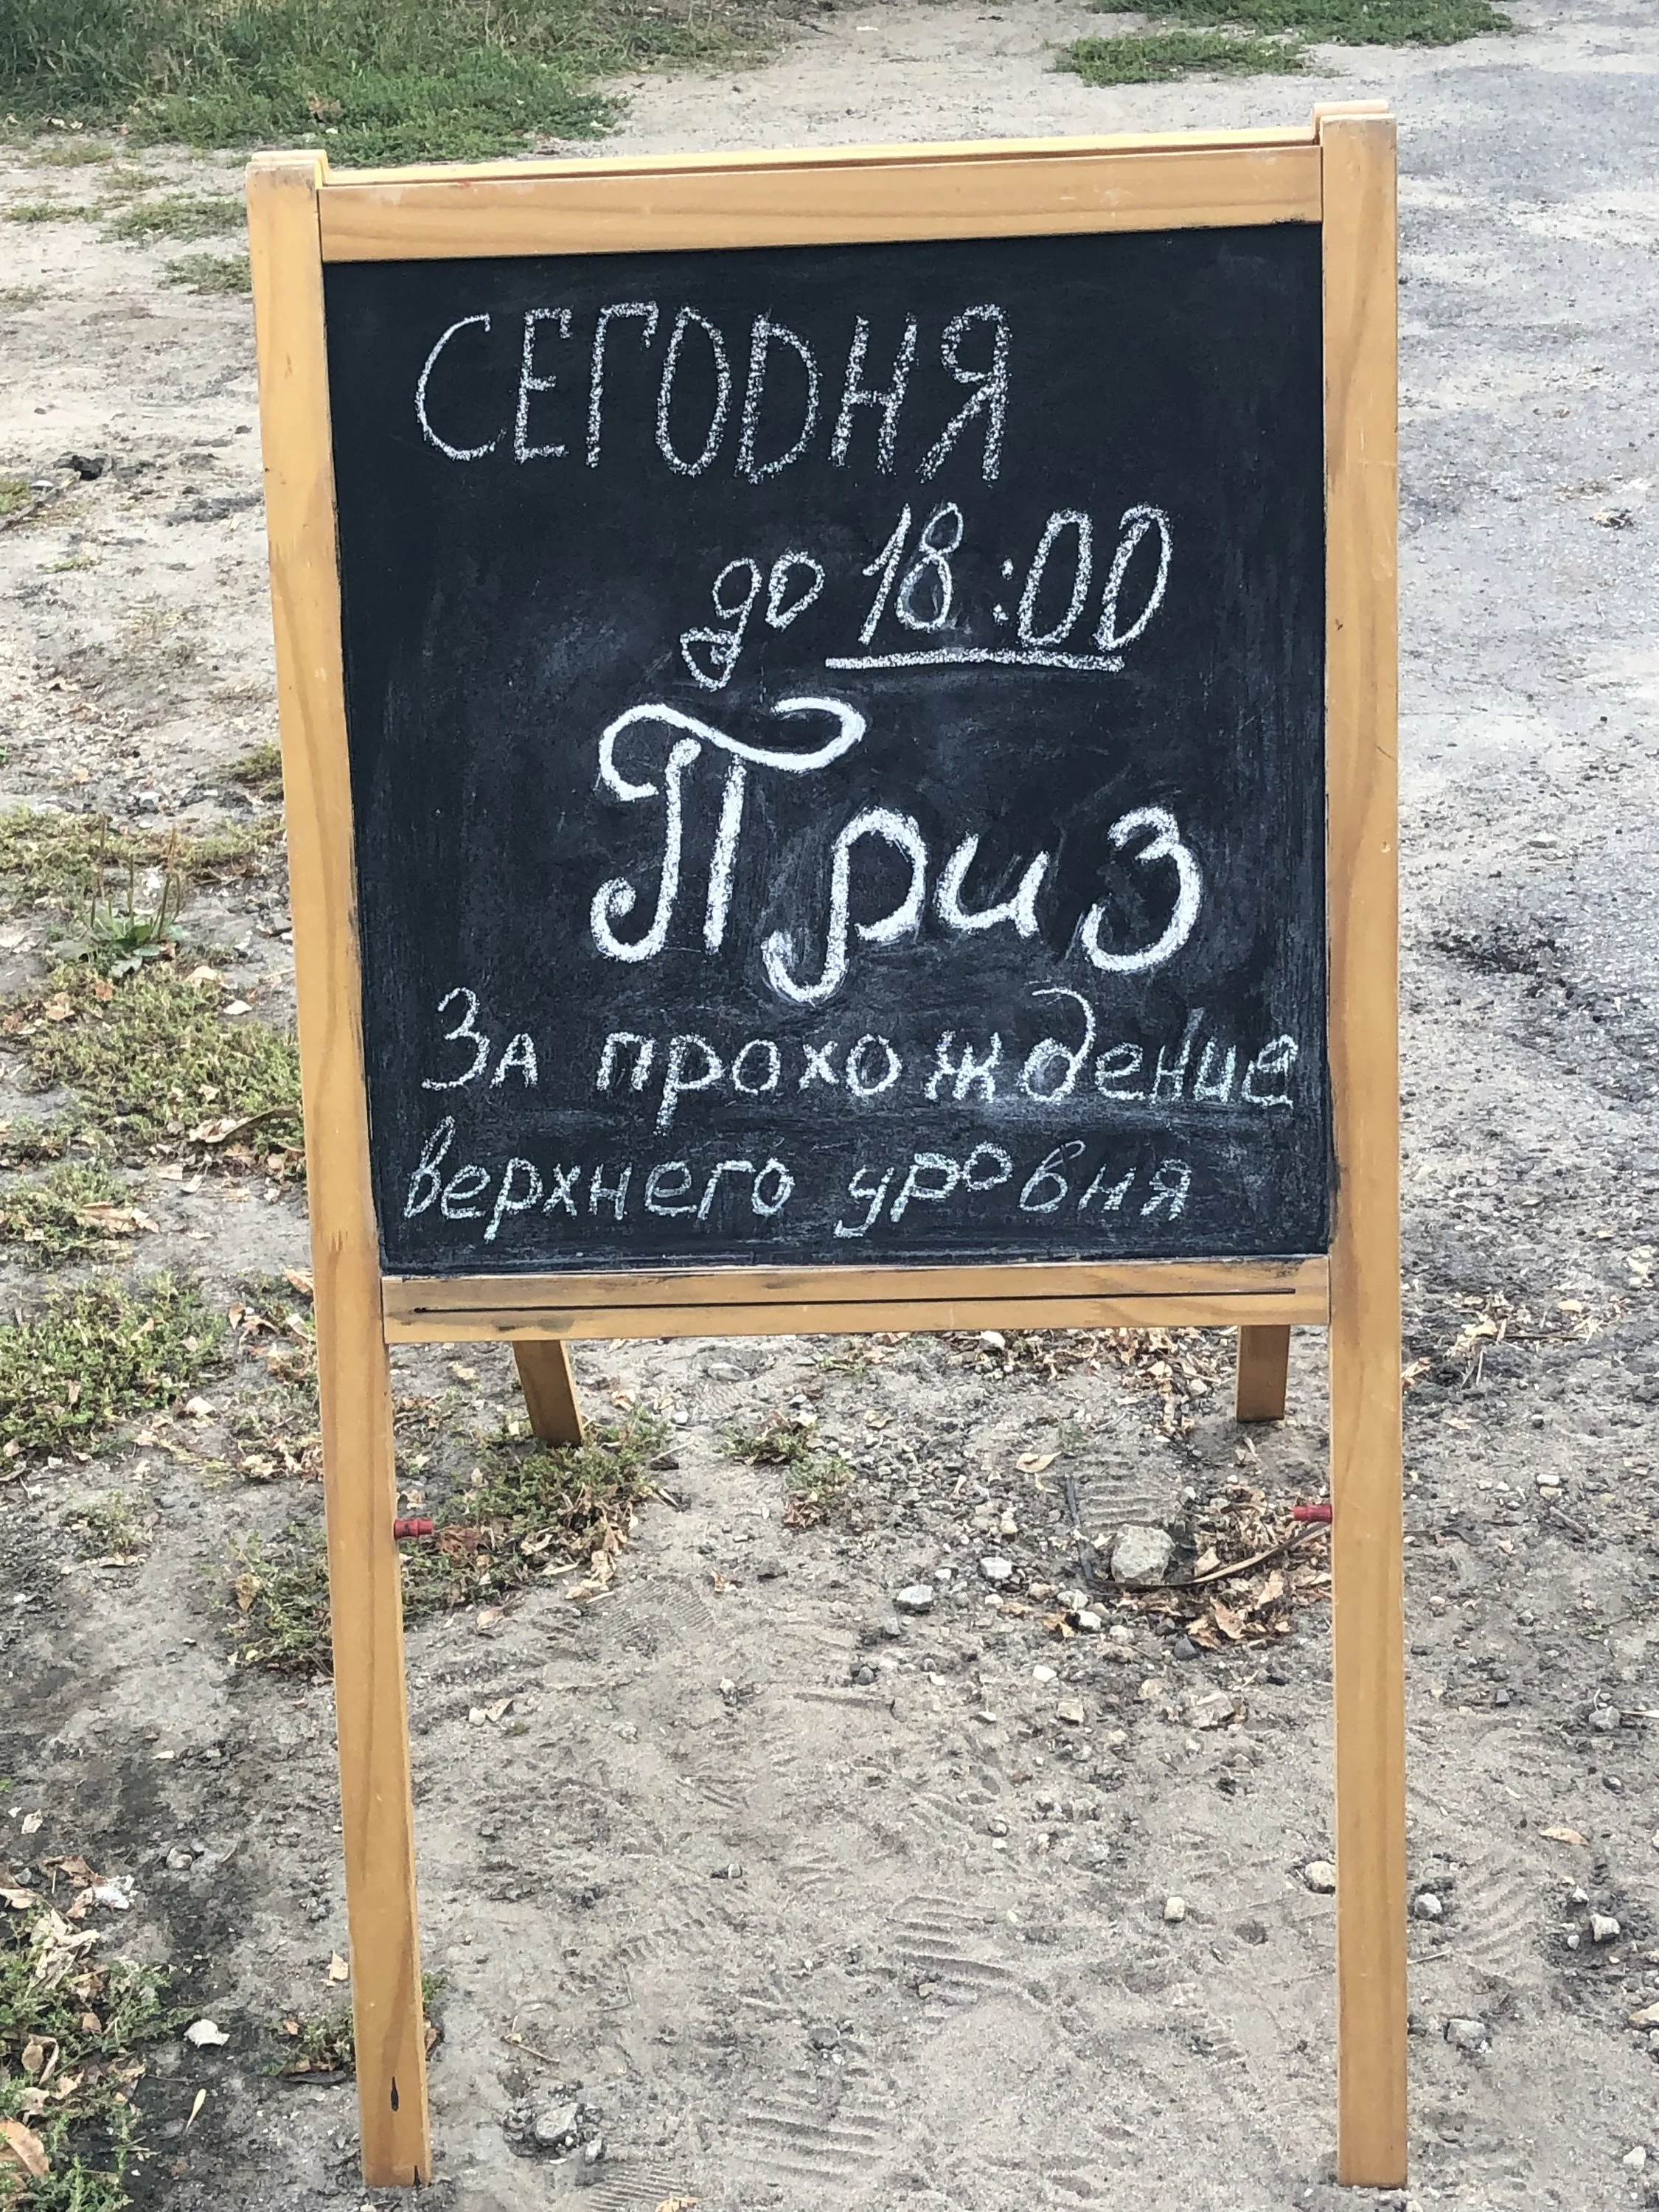 СЕГОДНЯ
до 18:00
Приз
За прохождение
верхнего уровня